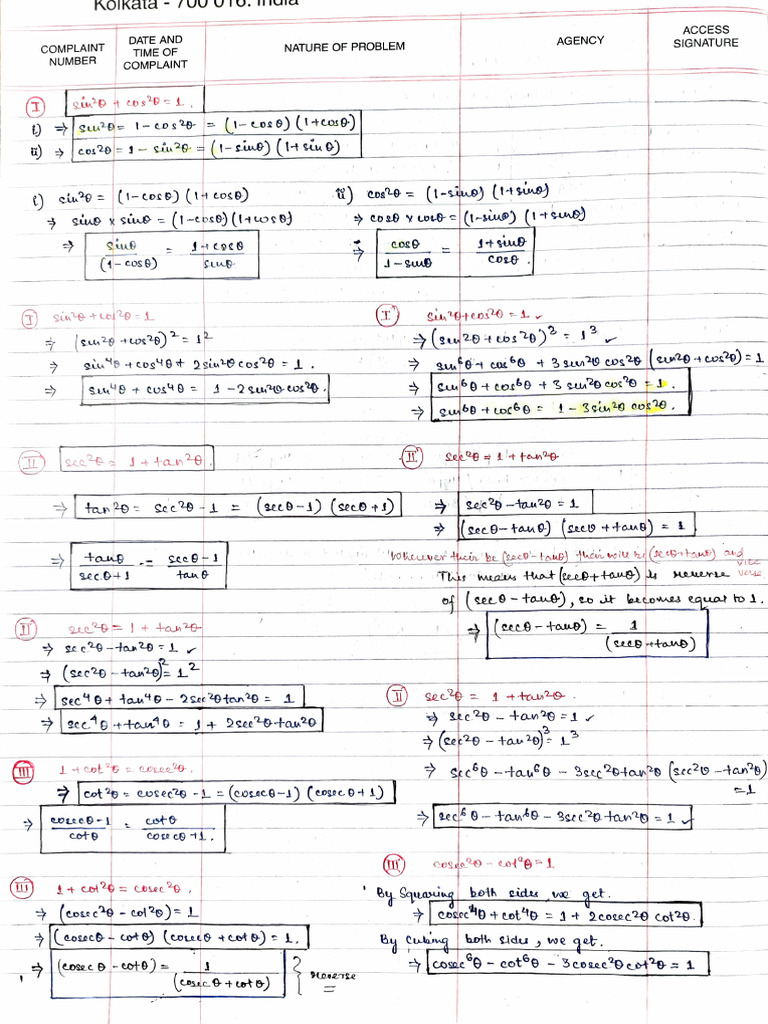 Kolkata - 700 016. India
COMPLAINT NUMBER
DATE AND TIME OF COMPLAINT
NATURE OF PROBLEM
AGENCY
ACCESS SIGNATURE
Ⓘ sin²θ + cos²θ = 1.
i) ⇒ sin²θ = 1 - cos²θ = (1 - cosθ) (1 + cosθ)
ii) ⇒ cos²θ = 1 - sin²θ = (1 - sinθ) (1 + sinθ)
i) sin²θ = (1 - cosθ) (1 + cosθ)
⇒ sinθ × sinθ = (1 - cosθ) (1 + cosθ)
⇒ sinθ/(1 - cosθ) = 1 + cosθ/sinθ
ii) cos²θ = (1 - sinθ) (1 + sinθ)
⇒ cosθ × cosθ = (1 - sinθ) (1 + sinθ)
⇒ cosθ/1 - sinθ = 1 + sinθ/cosθ.
I sin²θ + cos²θ = 1
⇒ (sin²θ + cos²θ)² = 1²
⇒ sin⁴θ + cos⁴θ + 2sin²θ cos²θ = 1.
⇒ sin⁴θ + cos⁴θ = 1 - 2sin²θ cos²θ.
I sin²θ + cos²θ = 1 ✓
⇒ (sin²θ + cos²θ)³ = 1³ ✓
⇒ sin⁶θ + cos⁶θ + 3sin²θ cos²θ (sin²θ + cos²θ) = 1
⇒ sin⁶θ + cos⁶θ + 3 sin²θ cos²θ = 1.
⇒ sin⁶θ + cos⁶θ = 1 - 3sin²θ cos²θ.
II sec²θ = 1 + tan²θ.
⇒ tan²θ = sec²θ - 1 = (secθ - 1) (secθ + 1)
⇒ tanθ/secθ + 1 = secθ - 1/tanθ
II sec²θ = 1 + tan²θ
⇒ sec²θ - tan²θ = 1
⇒ (secθ - tanθ) (secθ + tanθ) = 1
Wherever their be (secθ - tanθ) their will be (secθ + tanθ) and vice versa
This means that (secθ + tanθ) is reverse
of (secθ - tanθ), so it becomes equal to 1.
⇒ (secθ - tanθ) = 1/(secθ + tanθ)
II sec²θ = 1 + tan²θ
⇒ sec²θ - tan²θ = 1 ✓
⇒ (sec²θ - tan²θ)² = 1²
⇒ sec⁴θ + tan⁴θ - 2sec²θ tan²θ = 1
⇒ sec⁴θ + tan⁴θ = 1 + 2sec²θ tan²θ
II sec²θ = 1 + tan²θ.
⇒ sec²θ - tan²θ = 1 ✓
⇒ (sec²θ - tan²θ)³ = 1³
⇒ sec⁶θ - tan⁶θ - 3sec²θ tan²θ (sec²θ - tan²θ) = 1
⇒ sec⁶θ - tan⁶θ - 3sec²θ tan²θ = 1 ✓
III 1 + cot²θ = cosec²θ.
⇒ cot²θ = cosec²θ - 1 = (cosecθ - 1) (cosecθ + 1)
⇒ cosecθ - 1/cotθ = cotθ/cosecθ + 1.
III 1 + cot²θ = cosec²θ.
⇒ (cosec²θ - cot²θ) = 1
⇒ (cosecθ - cotθ) (cosecθ + cotθ) = 1.
⇒ (cosecθ - cotθ) = 1/(cosecθ + cotθ) } reverse
III cosec²θ - cot²θ = 1
By Squaring both sides, we get.
⇒ cosec⁴θ + cot⁴θ = 1 + 2cosec²θ cot²θ.
By Cubing both sides, we get.
⇒ cosec⁶θ - cot⁶θ - 3cosec²θ cot²θ = 1